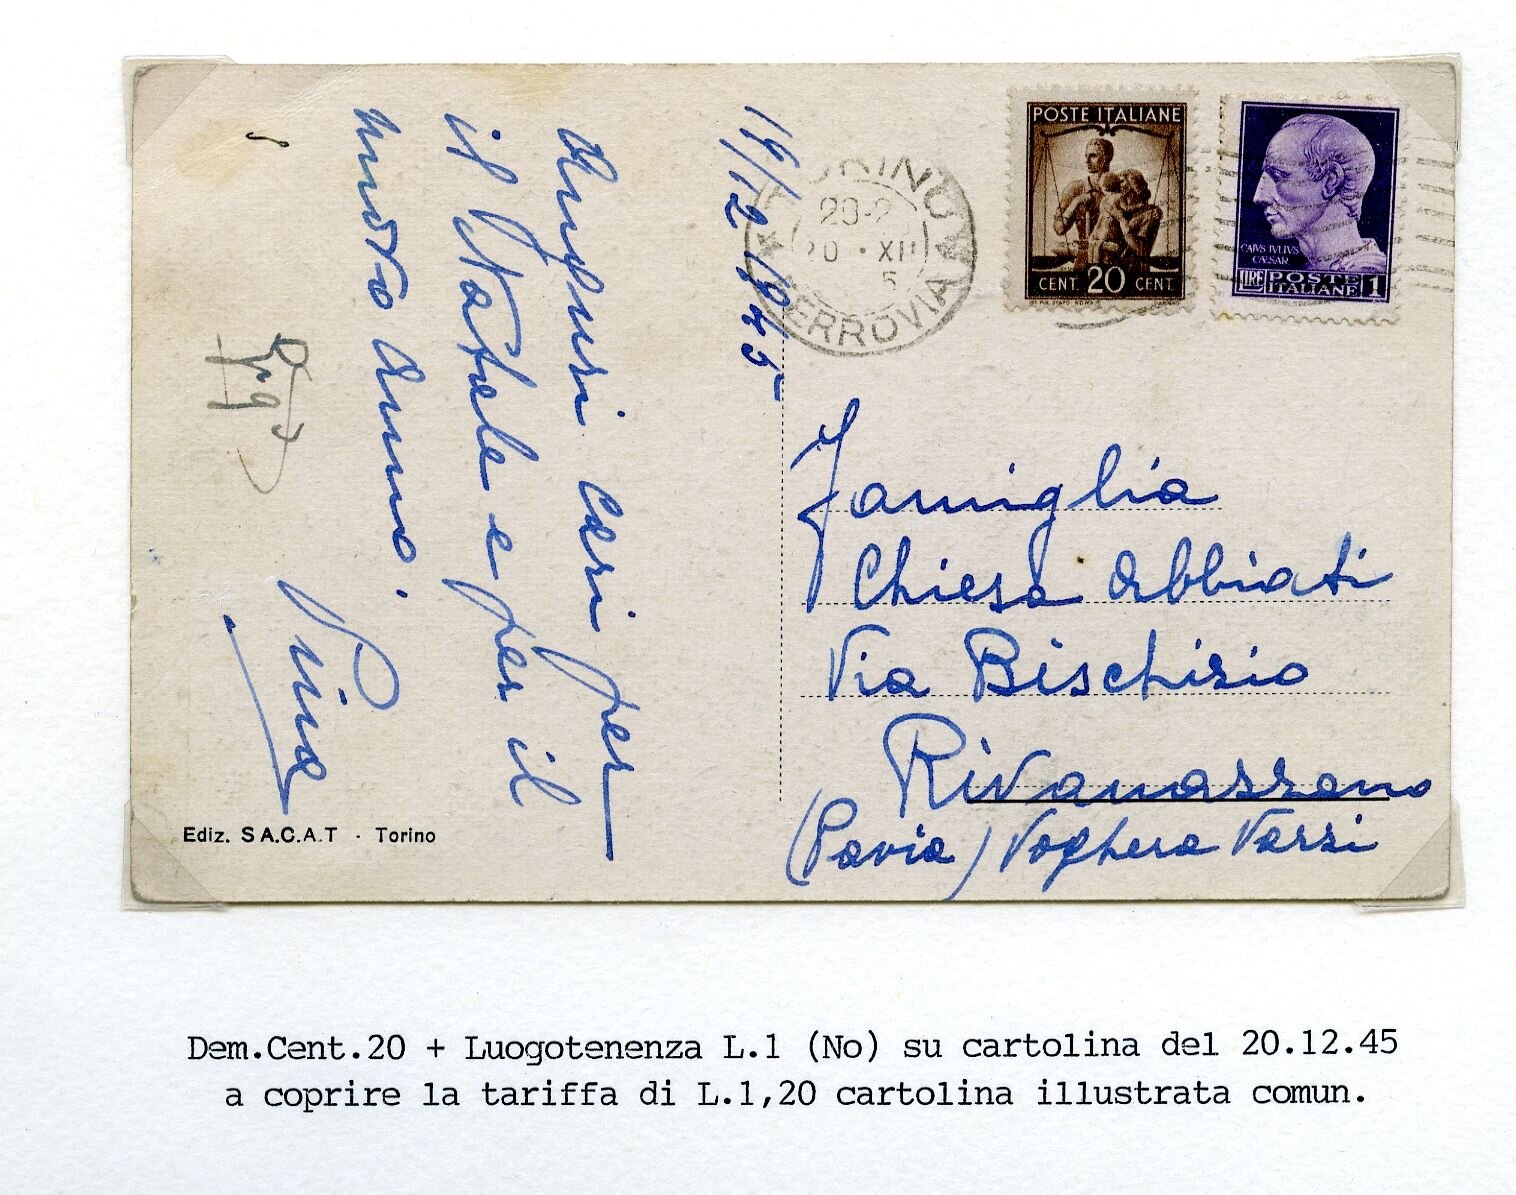 19/12 1945
Auguri cari per
il Natale e per il
nuovo Anno.
Pina
Ediz. S.A.C.A.T - Torino
TORINO
20 · XII
5
FERROVIA
POSTE ITALIANE
CENT 20 CENT
CAIVS IVLIVS
CÆSAR
LIRE POSTE ITALIANE 1
Famiglia
Chiesa Abbiati
Via Bischisio
Rivanazzano
(Pavia) Voghera Varzi
Dem.Cent.20 + Luogotenenza L.1 (No) su cartolina del 20.12.45
a coprire la tariffa di L.1,20 cartolina illustrata comun.